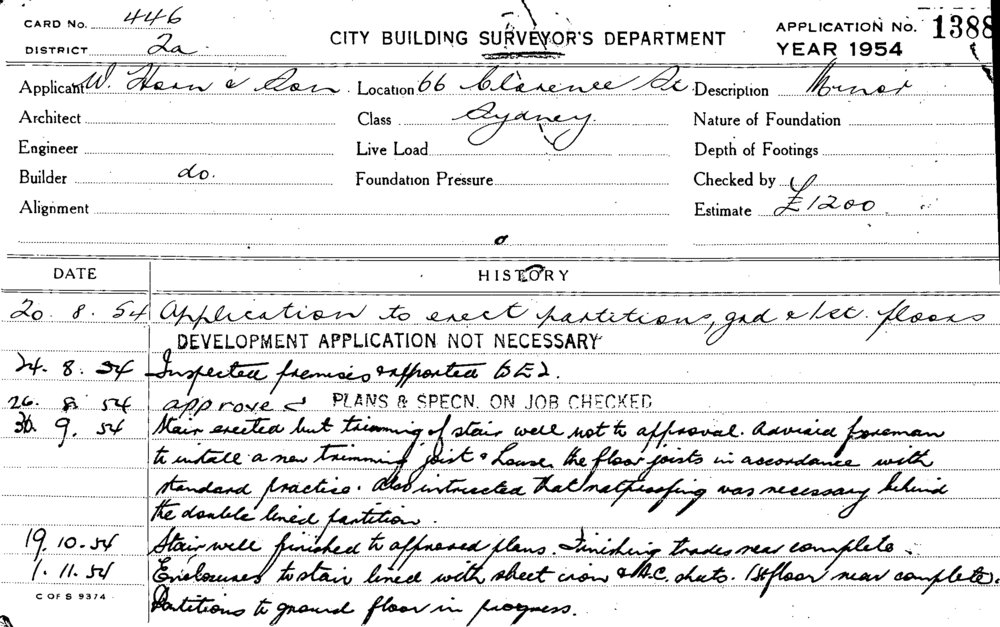 CARD No. 446
DISTRICT 2a
CITY BUILDING SURVEYOR'S DEPARTMENT
APPLICATION No. 1388
YEAR 1954
Applicant W. Horn & Son Location 66 Clarence St Description Minor
Architect Class Sydney Nature of Foundation
Engineer Live Load Depth of Footings
Builder do. Foundation Pressure Checked by
Alignment Estimate £1200
DATE HISTORY
20. 8. 54 Application to erect partitions, grd & 1st. floors
DEVELOPMENT APPLICATION NOT NECESSARY
24. 8. 54 Inspected premises & reported
26. 8. 54 approved PLANS & SPECN. ON JOB CHECKED
30. 9. 54 Stair erected but trimming of stair well not to approval. Advised foreman
to install a new trimming joist & house the floor joists in accordance with
standard practice. Also instructed that ratproofing was necessary behind
the double lined partition.
19. 10. 54 Stair well finished to approved plans. Finishing trades near complete.
1. 11. 54 Enclosures to stair lined with sheet iron & A.C. sheets. 1st floor near complete.
C OF S 9374 Partitions to ground floor in progress.